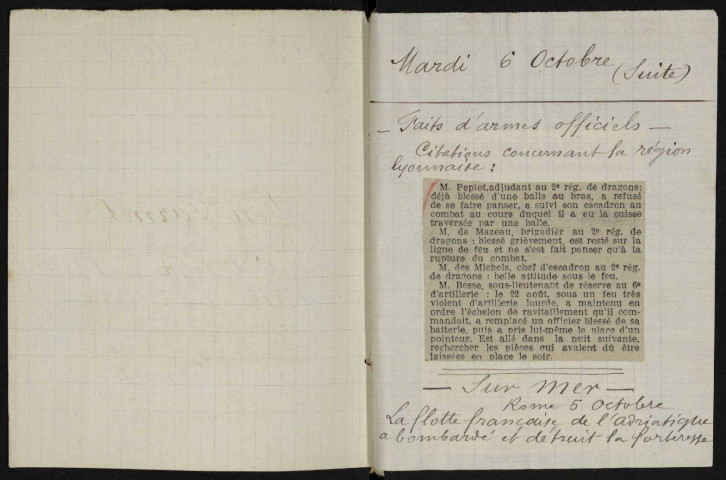 Mardi 6 Octobre (Suite)
— Faits d'armes officiels —
Citations concernant la région
lyonnaise :
M. Peplot, adjudant au 2e rég. de dragons:
déjà blessé d'une balle au bras, a refusé
de se faire panser, a suivi son escadron au
combat au cours duquel il a eu la cuisse
traversée par une balle.
M. de Mazeau, brigadier au 2e rég. de
dragons : blessé grièvement, est resté sur la
ligne de feu et ne s'est fait panser qu'à la
rupture du combat.
M. des Michels, chef d'escadron au 2e rég.
de dragons : belle attitude sous le feu.
M. Besse, sous-lieutenant de réserve au 6e
d'artillerie : le 22 août, sous un feu très
violent d'artillerie lourde, a maintenu en
ordre l'échelon de ravitaillement qu'il com-
mandait, a remplacé un officier blessé de sa
batterie, puis a pris lui-même la place d'un
pointeur. Est allé dans la nuit suivante,
rechercher les pièces qui avaient dû être
laissées en place le soir.
— Sur mer —
Rome 5 Octobre
La flotte française de l'adriatique
a bombardé et détruit la forteresse